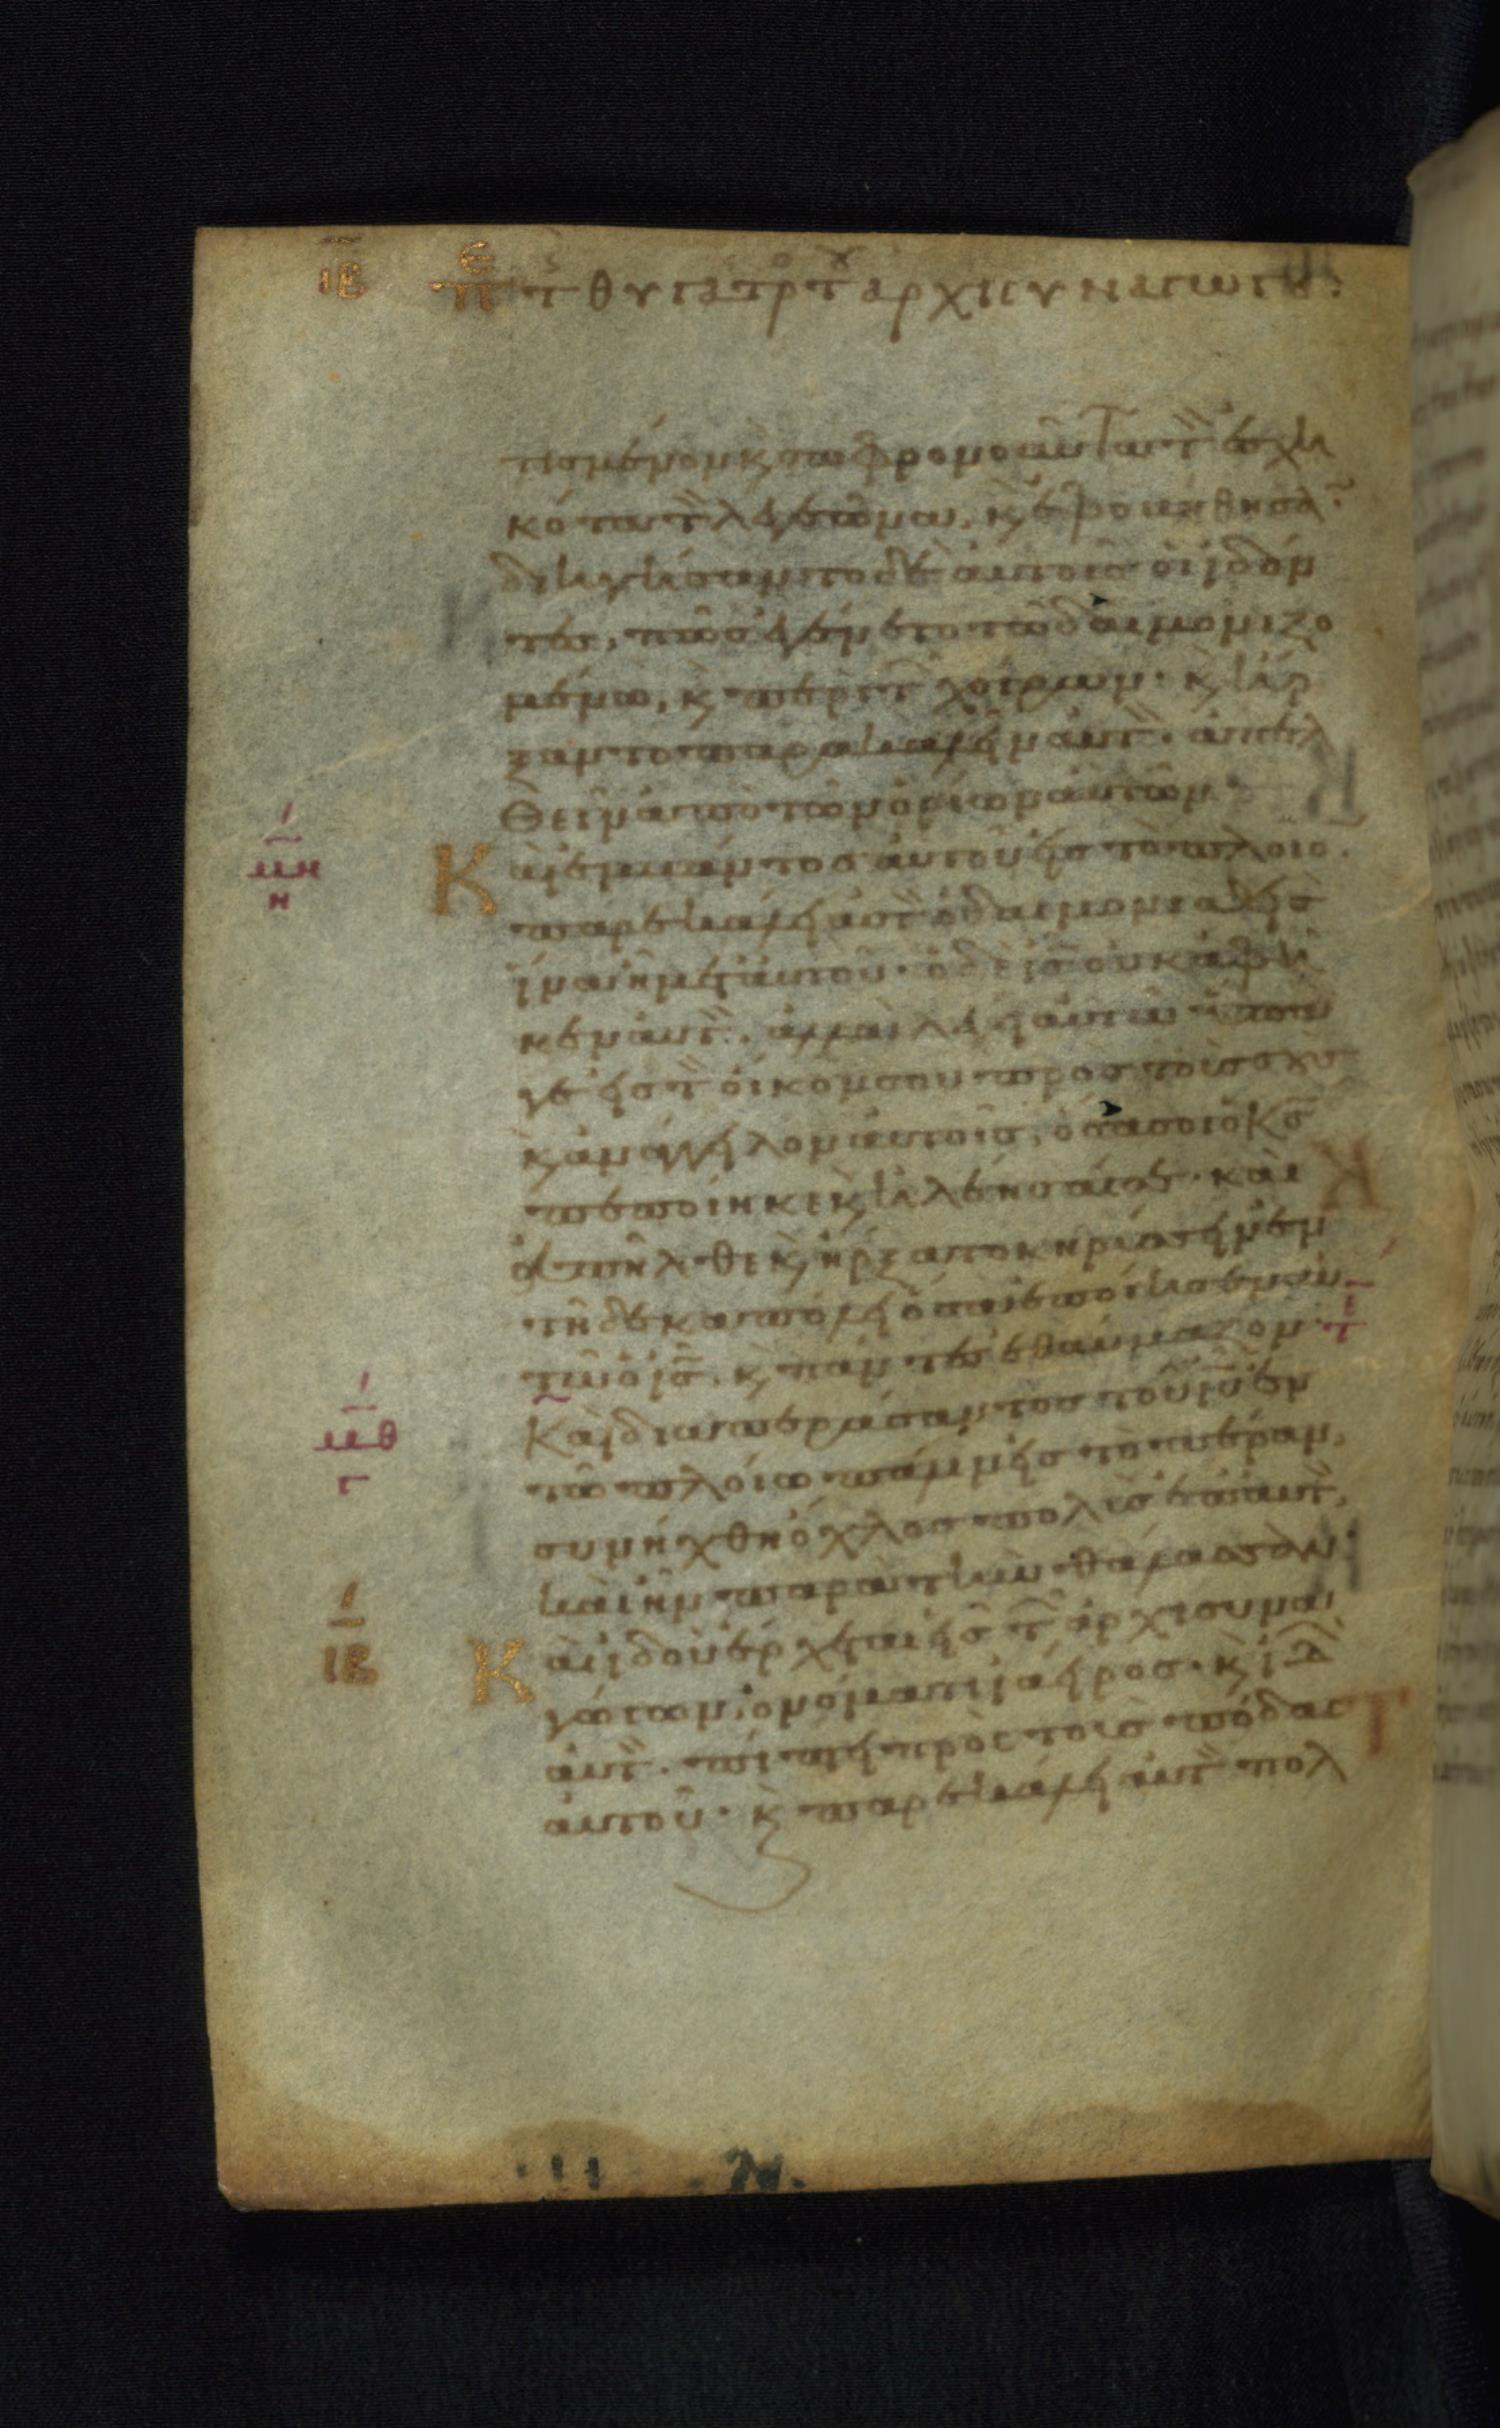 ιβ περὶ τῆς θυγατρὸς τοῦ ἀρχισυναγώγου:
τισμένον κ̀ σωφρονοῦντα τ̀ ἐσχη
κότα τ̀ λεγεῶνα, κ̀ ἐφοβήθησαν·
διηγήσαντο δὲ αὐτοῖς οἱ ἰδόν
τες, πῶς ἐγένετο τῶ δαιμονιζο
μένω, κ̀ περὶ τῶν χοίρων· κ̀ ἤρ
ξαντο παρακαλεῖν αὐτὸν· ἀπελ
θεῖν ἀπὸ τῶν ὁρίων αὐτῶν·
μη
η
Καὶ ἐμβάντος αὐτοῦ εἰς τὸ πλοῖον·
παρεκάλει αὐτὸν ὁ δαιμονισθεὶς
ἵνα ἦν μετ' αὐτοῦ· ὁ δὲ ἰς̄ οὐκ ἀφῆ
κεν αὐτὸν· ἀλλὰ λέγει αὐτῶ ὕπα
γε εἰς τὸν οἶκόν σου πρὸς τοὺς σοὺς
κ̀ ἀνάγγειλον αὐτοῖς, ὅσα σοι ὁ κς̄
πεποίηκε κ̀ ἠλέησέ σε· καὶ
ἀπῆλθε κ̀ ἤρξατο κηρύσσειν ἐν
τῆ δεκαπόλει ὅσα ἐποίησεν αὐ
τῶ ὁ ις̄, κ̀ πάντες ἐθαύμαζον·
μθ
Καὶ διαπεράσαντος τοῦ ιῦ ἐν
τῶ πλοίω πάλιν εἰς τὸ πέραν,
συνήχθη ὄχλος πολὺς ἐπ' αὐτὸν,
καὶ ἦν παρὰ τὴν θάλασσαν·
ιβ
Καὶ ἰδοὺ ἔρχεται εἷς τῶν ἀρχισυνα
γώγων, ὀνόματι ἰάειρος· κ̀ ἰδὼν
αὐτὸν· πίπτει πρὸς τοὺς πόδας
αὐτοῦ· κ̀ παρεκάλει αὐτὸν πολ